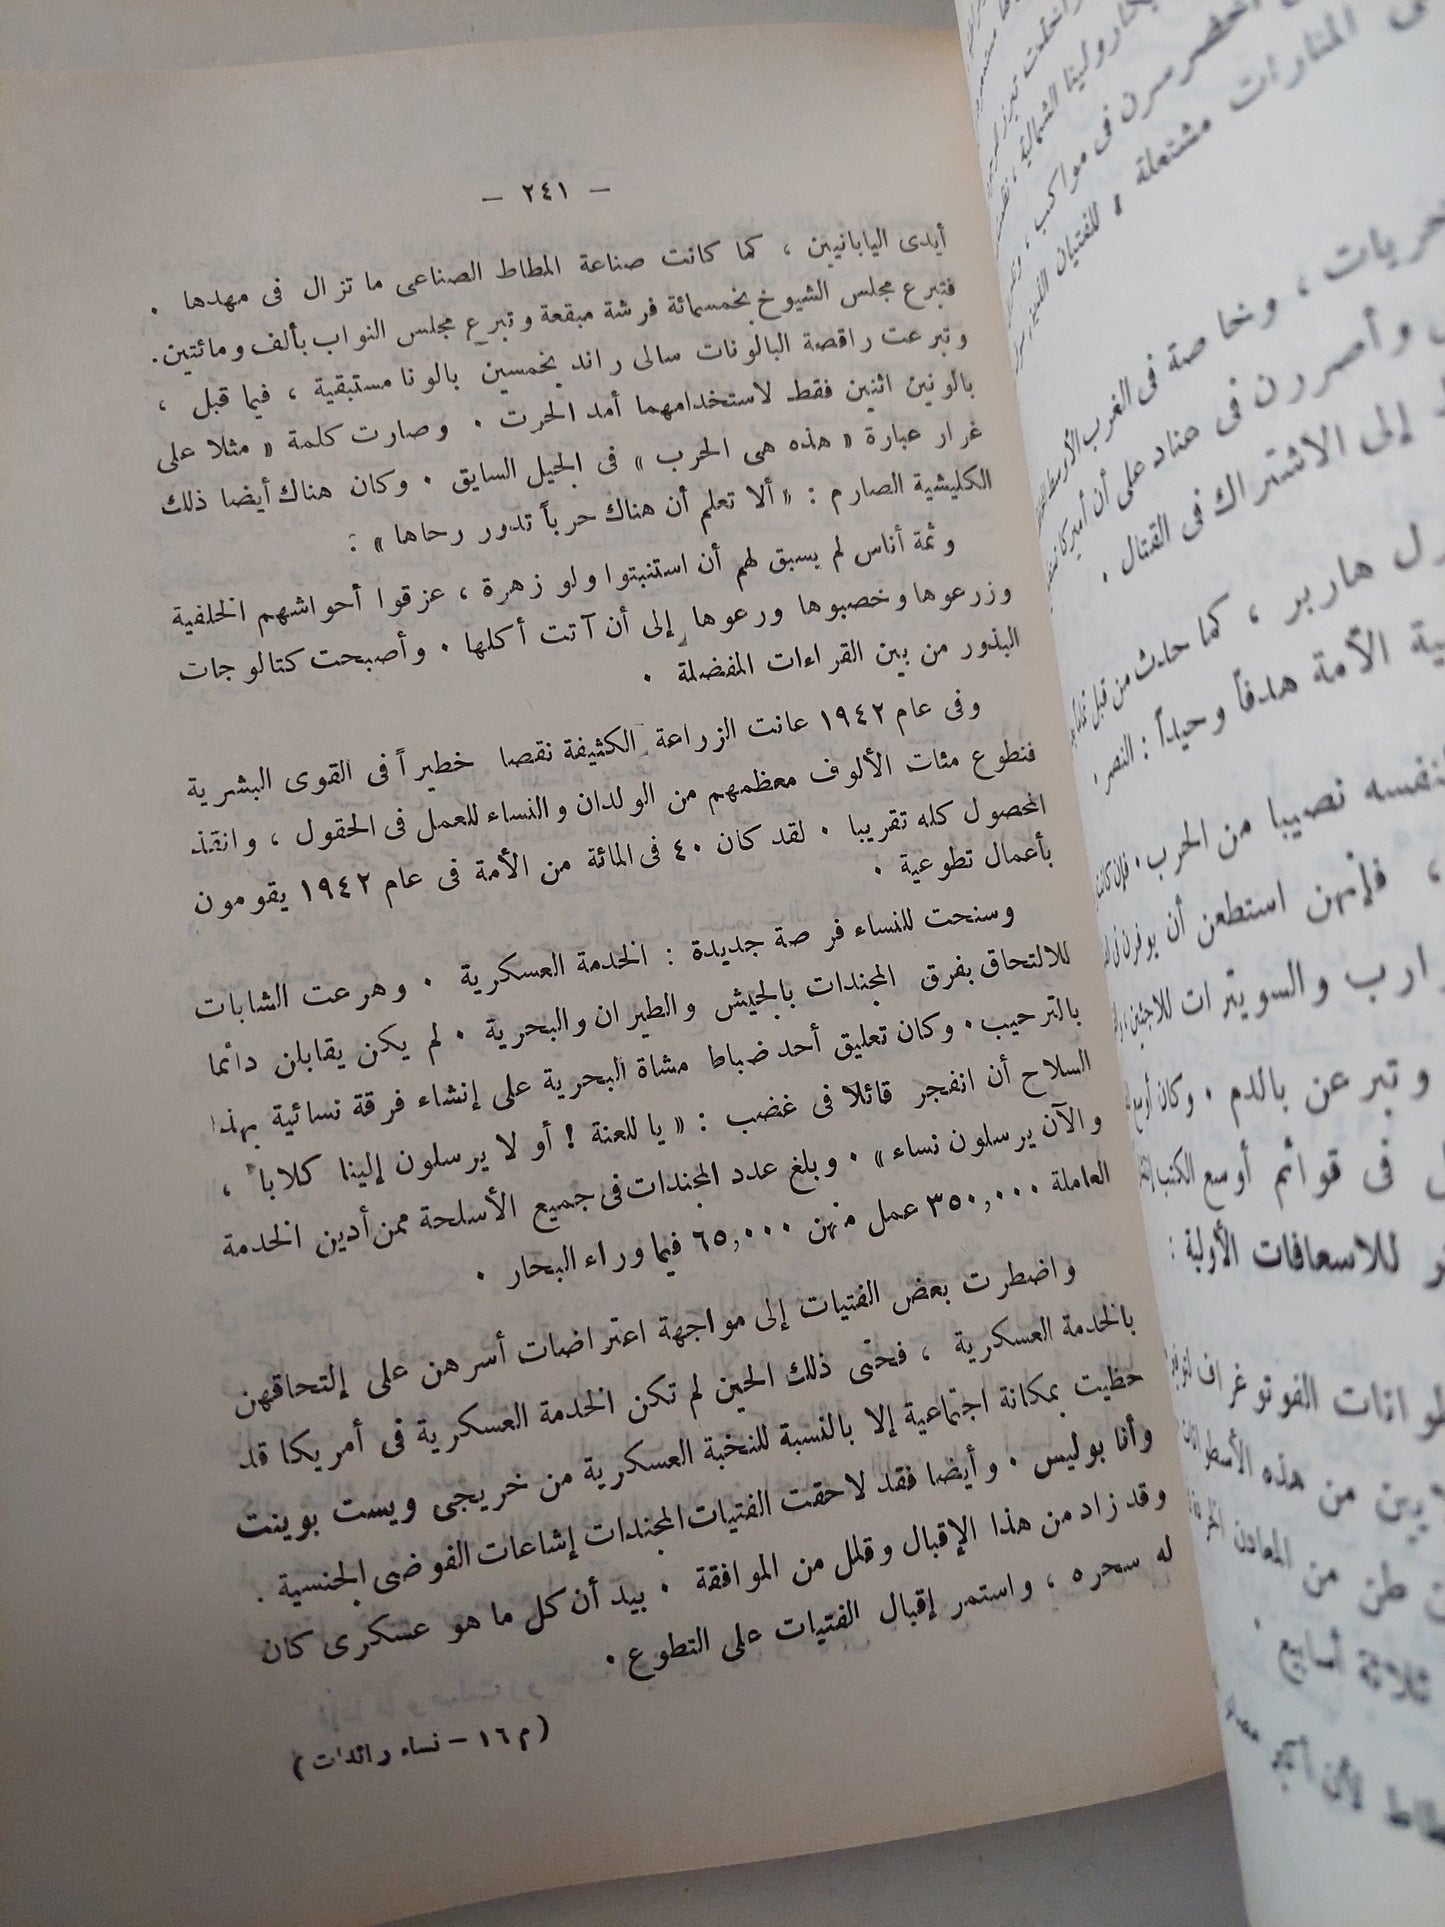 — ٢٤١ —
أيدى اليابانيين ، كما كانت صناعة المطاط الصناعى ما تزال فى مهدها .
فتبرع مجلس الشيوخ بخمسمائة فرشة مبقعة وتبرع مجلس النواب بألف ومائتين.
وتبرعت راقصة البالونات سالى راند بخمسين بالونا مستبقية ، فيما قبل ،
بالونين اثنين فقط لاستخدامهما أمد الحرت . وصارت كلمة « مثلا على
غرار عبارة « هذه هى الحرب » فى الجيل السابق . وكان هناك أيضا ذلك
الكليشية الصارم : « ألا تعلم أن هناك حرباً تدور رحاها » :
وثمة أناس لم يسبق لهم أن استنبتوا ولو زهرة ، عزقوا أحواشهم الخلفية
وزرعوها وخصبوها ورعوها إلى أن آتت أكلها . وأصبحت كتالوجات
البذور من بين القراءات المفضلة .
وفى عام ١٩٤٢ عانت الزراعة الكثيفة نقصا خطيراً فى القوى البشرية
فتطوع مئات الألوف معظمهم من الولدان والنساء للعمل فى الحقول ، وانقذ
المحصول كله تقريبا . لقد كان ٤٠ فى المائة من الأمة فى عام ١٩٤٢ يقومون
بأعمال تطوعية .
وسنحت للنساء فرصة جديدة : الخدمة العسكرية . وهرعت الشابات
للالتحاق بفرق المجندات بالجيش والطيران والبحرية . لم يكن يقابلن دائما
بالترحيب . وكان تعليق أحد ضباط مشاة البحرية على إنشاء فرقة نسائية بهذا
السلاح أن انفجر قائلا فى غضب : « يا للعنة ! أو لا يرسلون إلينا كلابا ،
والآن يرسلون نساء » . وبلغ عدد المجندات فى جميع الأسلحة ممن أدين الخدمة
العاملة ٣٥٠,٠٠٠ عمل منهن ٦٥,٠٠٠ فيما وراء البحار .
واضطرت بعض الفتيات إلى مواجهة اعتراضات أسرهن على إلتحاقهن
بالخدمة العسكرية ، فحتى ذلك الحين لم تكن الخدمة العسكرية فى أمريكا قد
حظيت بمكانة اجتماعية إلا بالنسبة للنخبة العسكرية من خريجى ويست بوينت
وأنا بوليس . وأيضا فقد لاحقت الفتيات المجندات إشاعات الفوضى الجنسية .
وقد زاد من هذا الإقبال وقلل من الموافقة . بيد أن كل ما هو عسكرى كان
له سحره ، واستمر إقبال الفتيات على التطوع .
(م ١٦ – نساء رائدات)
المنارات مشتعلة ، للفتيان
، وخاصة فى الغرب الأوسط
وأصررن فى عناد على أن أميركا
إلى الاشتراك فى القتال .
هاربر ، كما حدث من قبل
الأمة هدفاً وحيداً : النصر .
لنفسه نصيبا من الحرب .
، فإنهن استطعن أن يوفرن
والسويترات للاجئين
وتبرعن بالدم . وكان
فى قوائم أوسع الكتب
للاسعافات الأولية :
الفوتوغراف
من هذه
طن من المعادن
ثلاثة أسابيع .